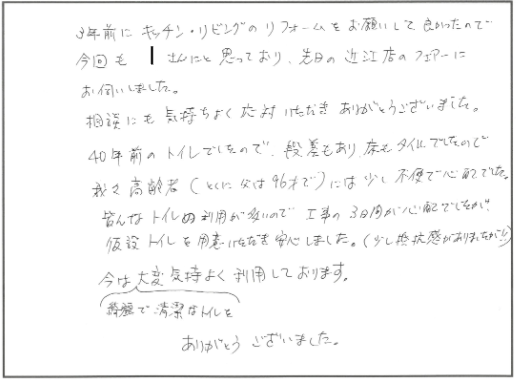 3年前にキッチン・リビングのリフォームをお願いして良かったので
今回も さんにと思っており、先日の近江店のフェアーに
お伺いしました。
相談にも気持ちよく応対いただきありがとうございました。
40年前のトイレでしたので、段差もあり、床もタイルでしたので
我々高齢者(とくに父は96才で)には少し不便で心配でした。
皆んなトイレの利用が多いので工事の3日間が心配でしたが
仮設トイレを用意いただき安心しました。(少し抵抗感がありましたが!!)
今は大変気持よく利用しております。
綺麗で清潔なトイレを
ありがとうございました。